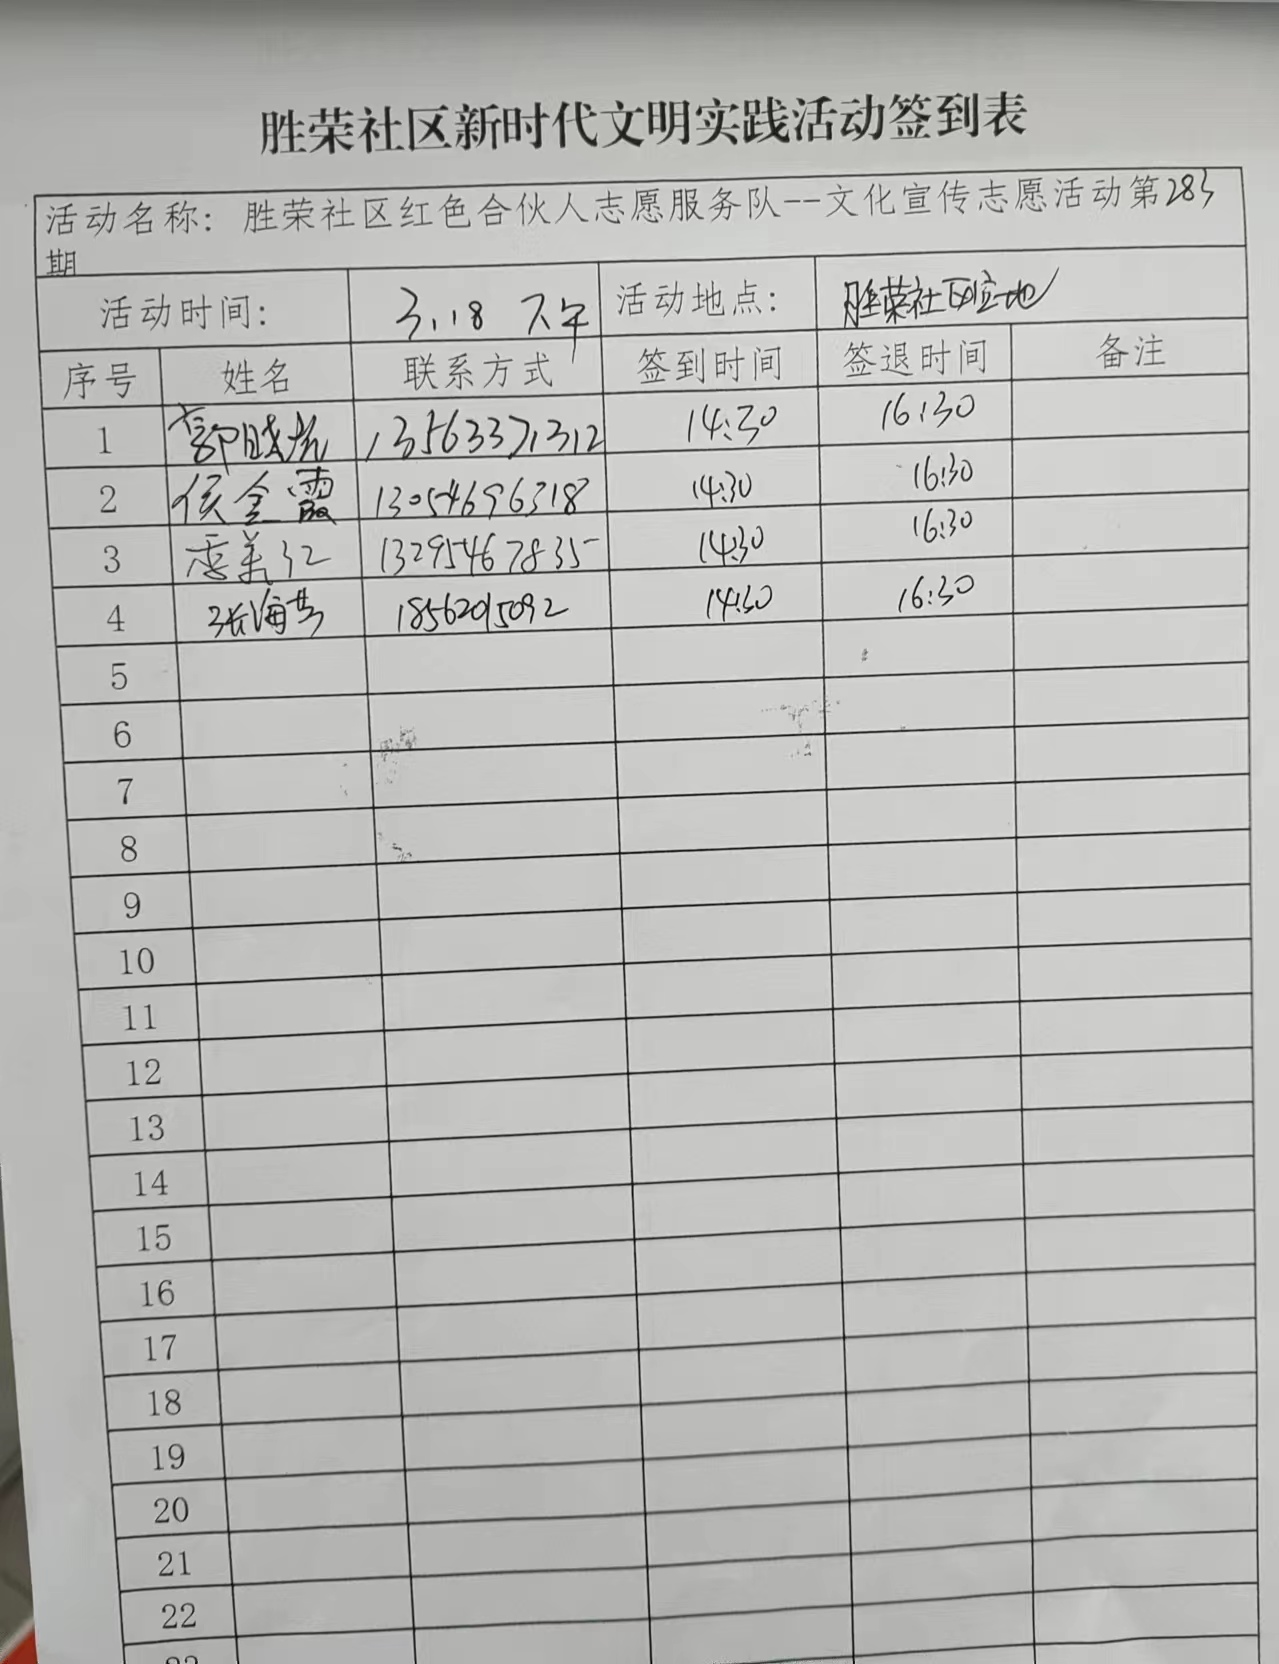 胜荣社区新时代文明实践活动签到表
活动名称：胜荣社区红色合伙人志愿服务队--文化宣传志愿活动第283
期
活动时间： 3.18 下午 活动地点： 胜荣社区驻地
序号 姓名 联系方式 签到时间 签退时间 备注
1 郭 13563371312 14:30 16:30
2 侯金霞 13054696318 14:30 16:30
3 美红 13295467835 14:30 16:30
4 张海芳 18562015092 14:30 16:30
5
6
7
8
9
10
11
12
13
14
15
16
17
18
19
20
21
22